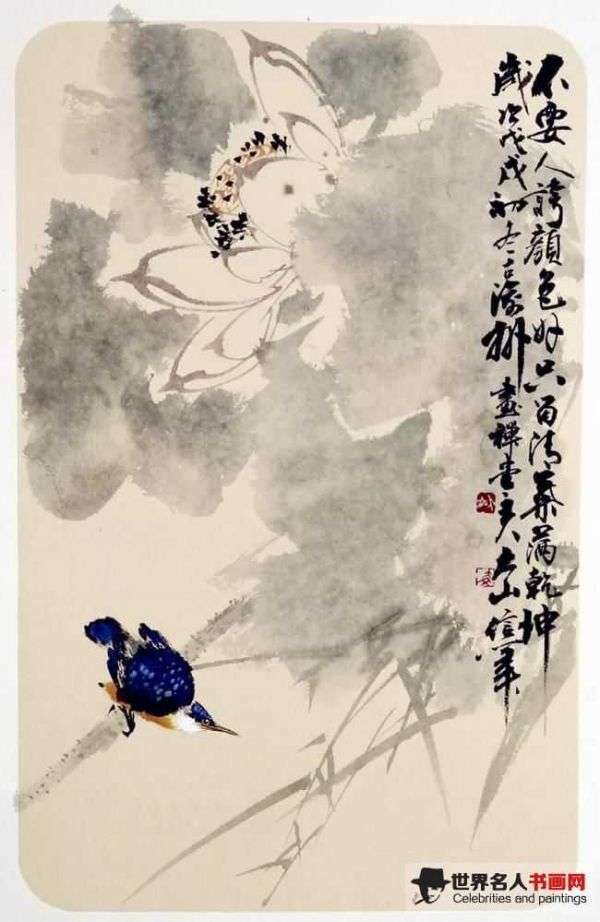 不要人誇顏色好只留清氣滿乾坤
歲次戊戌初冬古州畫禪堂主人大山信筆
世界名人书画网
Celebrities and paintings